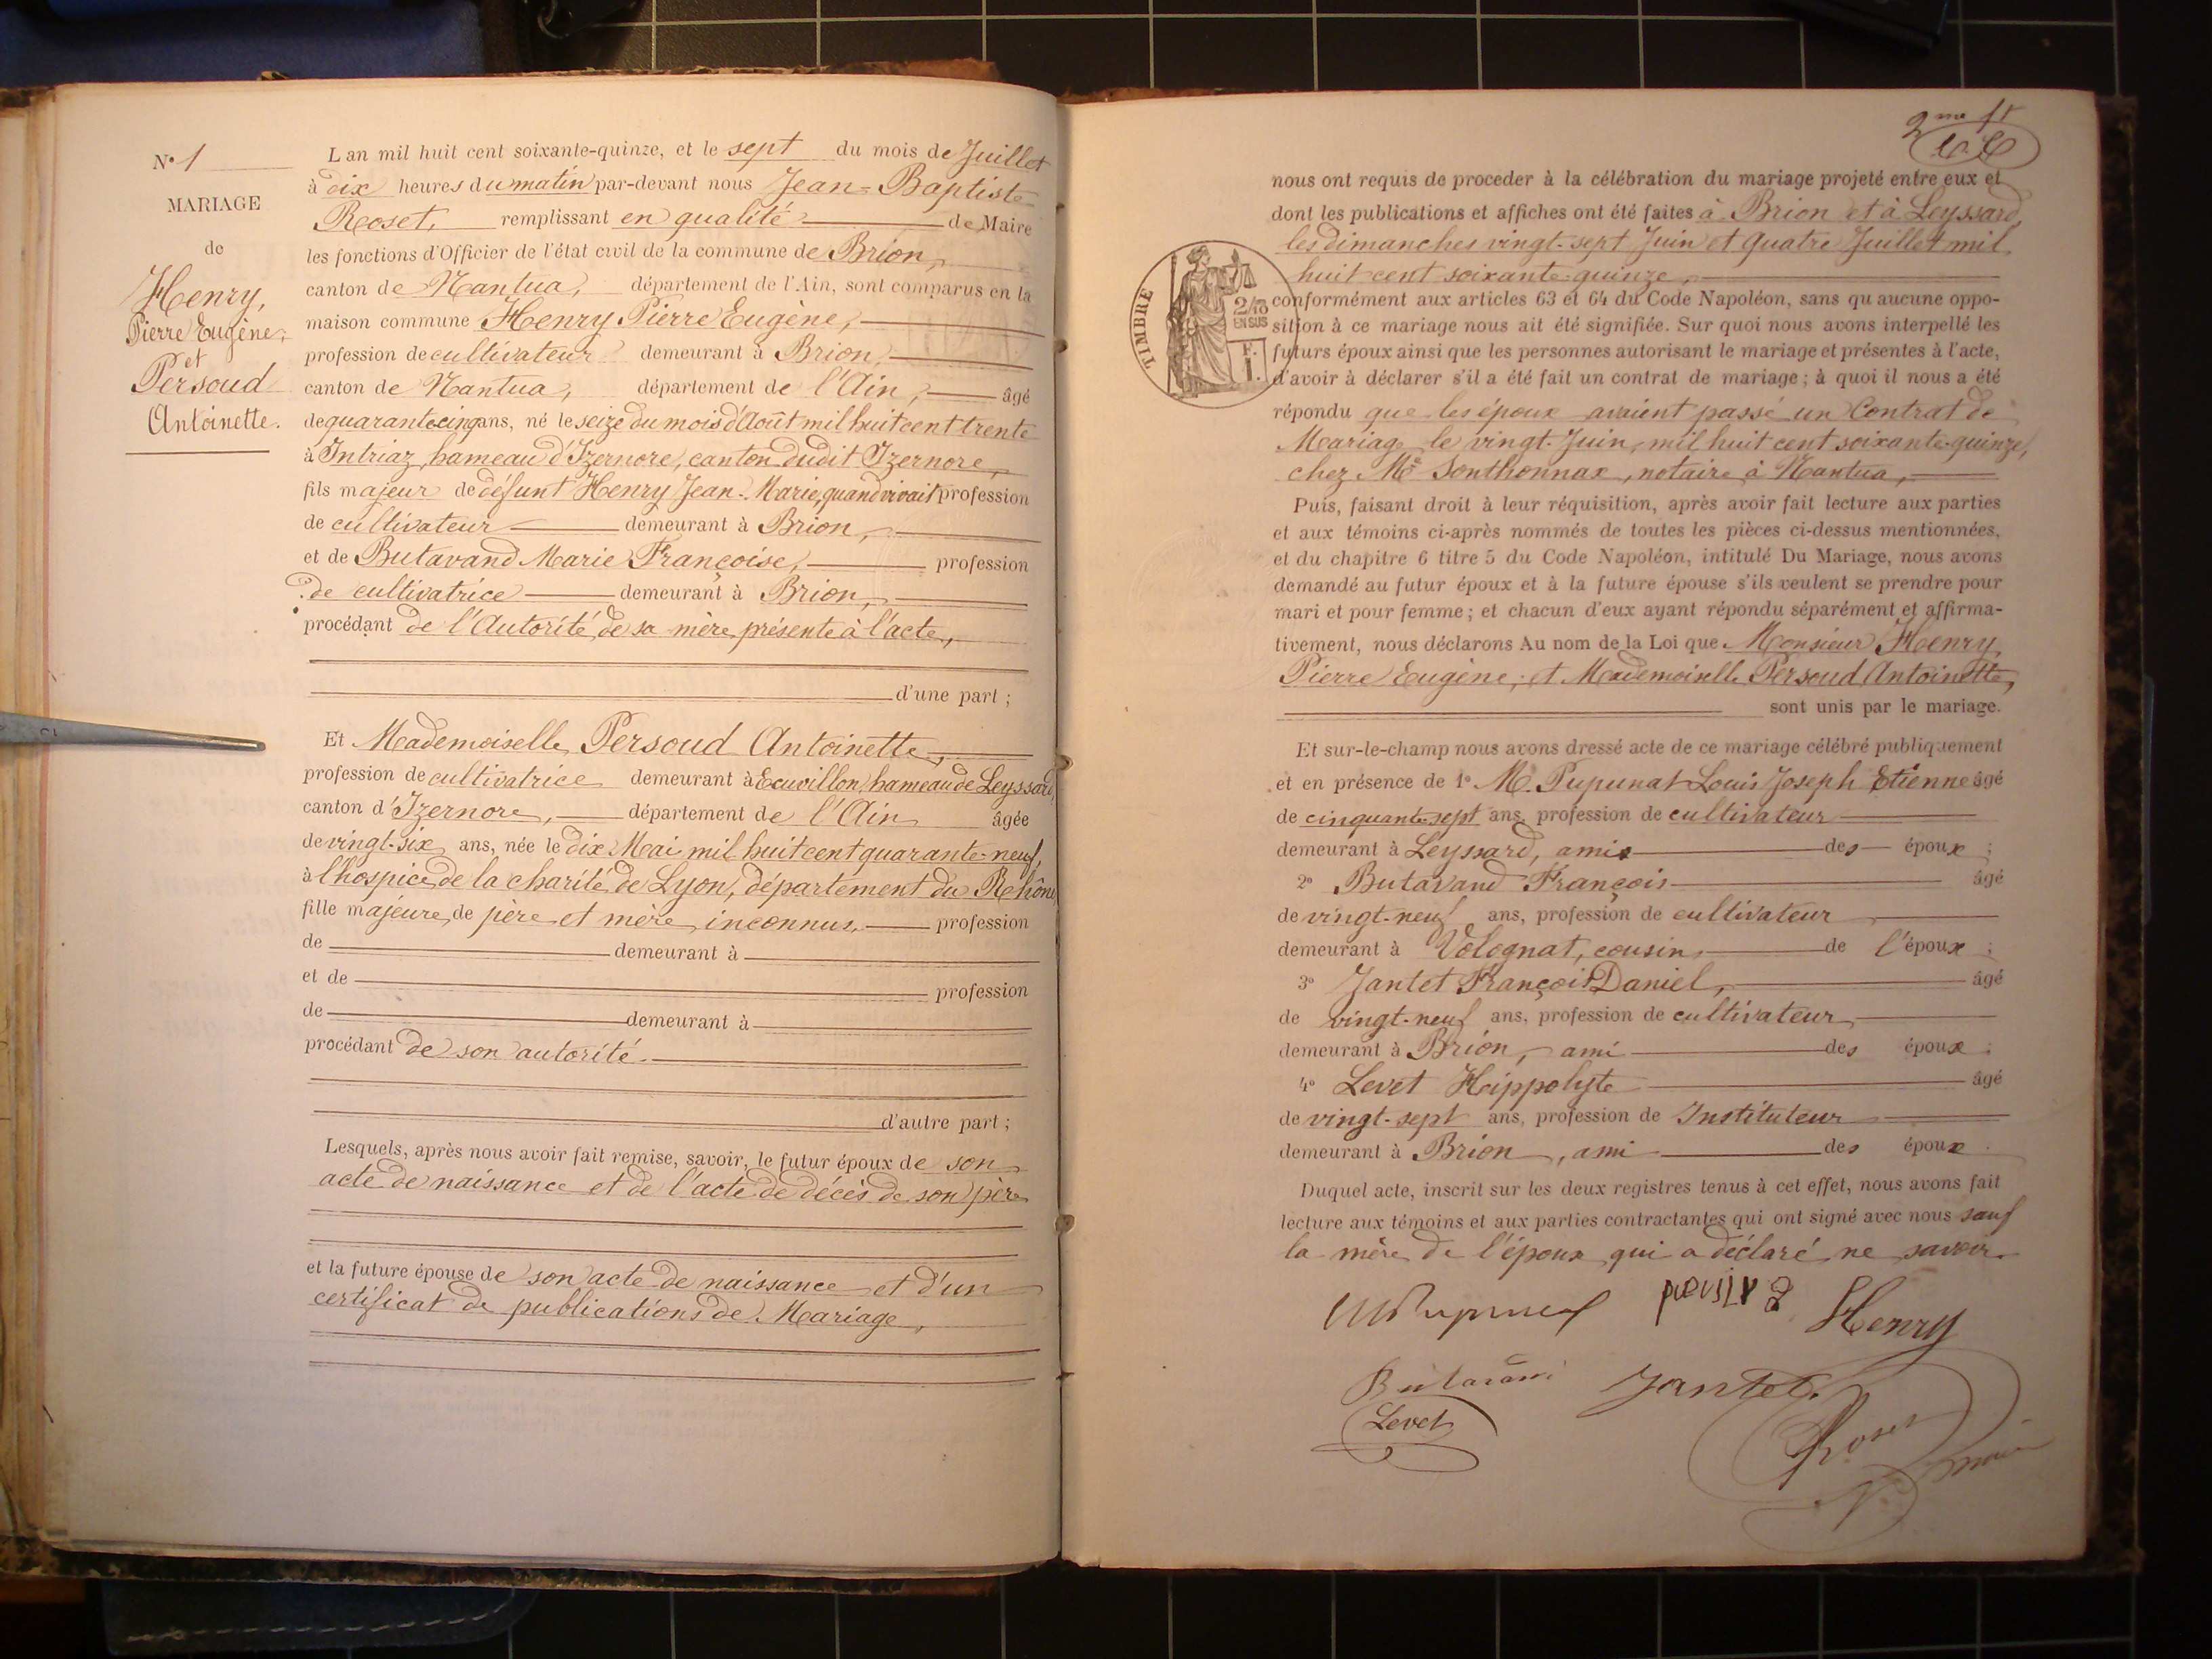 N° 1
MARIAGE
de
Henry,
Pierre Eugène,
et
Persoud
Antoinette.
L'an mil huit cent soixante-quinze, et le sept du mois de Juillet
à dix heures du matin par-devant nous Jean-Baptiste
Roset, remplissant en qualité de Maire
les fonctions d'Officier de l'état civil de la commune de Brion,
canton de Nantua, département de l'Ain, sont comparus en la
maison commune Henry Pierre Eugène,
profession de cultivateur demeurant à Brion,
canton de Nantua, département de l'Ain, âgé
de quarante cinq ans, né le seize du mois d'Août mil huit cent trente
à Intriaz, hameau d'Izernore, canton dudit Izernore,
fils majeur de défunt Henry Jean-Marie, quand vivait profession
de cultivateur demeurant à Brion,
et de Butavand Marie Françoise, profession
de cultivatrice demeurant à Brion,
procédant de l'Autorité de sa mère présente à l'acte,
d'une part ;
Et Mademoiselle Persoud Antoinette,
profession de cultivatrice demeurant à Ecuvillon, hameau de Leyssard,
canton d'Izernore, département de l'Ain âgée
de vingt-six ans, née le dix Mai mil huit cent quarante-neuf,
à l'hospice de la charité de Lyon, département du Rhône,
fille majeure, de père et mère inconnus, profession
de demeurant à
et de profession
de demeurant à
procédant de son autorité.
d'autre part ;
Lesquels, après nous avoir fait remise, savoir, le futur époux de son
acte de naissance et de l'acte de décès de son père
et la future épouse de son acte de naissance et d'un
certificat de publications de Mariage,
2me ft
nous ont requis de procéder à la célébration du mariage projeté entre eux et
dont les publications et affiches ont été faites à Brion et à Leyssard,
les dimanches vingt-sept Juin et quatre Juillet mil
huit cent soixante-quinze,
TIMBRE
2/10
EN SUS
F.
1.
conformément aux articles 63 et 64 du Code Napoléon, sans qu'aucune oppo-
sition à ce mariage nous ait été signifiée. Sur quoi nous avons interpellé les
futurs époux ainsi que les personnes autorisant le mariage et présentes à l'acte,
d'avoir à déclarer s'il a été fait un contrat de mariage ; à quoi il nous a été
répondu que les époux avaient passé un Contrat de
Mariage le vingt-Juin, mil huit cent soixante-quinze,
chez Me Sonthonnax, notaire à Nantua,
Puis, faisant droit à leur réquisition, après avoir fait lecture aux parties
et aux témoins ci-après nommés de toutes les pièces ci-dessus mentionnées,
et du chapitre 6 titre 5 du Code Napoléon, intitulé Du Mariage, nous avons
demandé au futur époux et à la future épouse s'ils veulent se prendre pour
mari et pour femme ; et chacun d'eux ayant répondu séparément et affirma-
tivement, nous déclarons Au nom de la Loi que Monsieur Henry,
Pierre Eugène, et Mademoiselle Persoud Antoinette,
sont unis par le mariage.
Et sur-le-champ nous avons dressé acte de ce mariage célébré publiquement
et en présence de 1° M. Pupunat Louis Joseph Etienne âgé
de cinquante-sept ans, profession de cultivateur
demeurant à Leyssard, ami des époux ;
2° Butavand François âgé
de vingt-neuf ans, profession de cultivateur
demeurant à Volognat, cousin, de l'époux ;
3° Jantet François Daniel, âgé
de vingt-neuf ans, profession de cultivateur,
demeurant à Brion, ami des époux ;
4° Levet Hippolyte âgé
de vingt-sept ans, profession de Instituteur
demeurant à Brion, ami des époux .
Duquel acte, inscrit sur les deux registres tenus à cet effet, nous avons fait
lecture aux témoins et aux parties contractantes qui ont signé avec nous sauf
la mère de l'époux qui a déclaré ne savoir.
Henry
Butavand
Jantet
Levet
Roset
maire